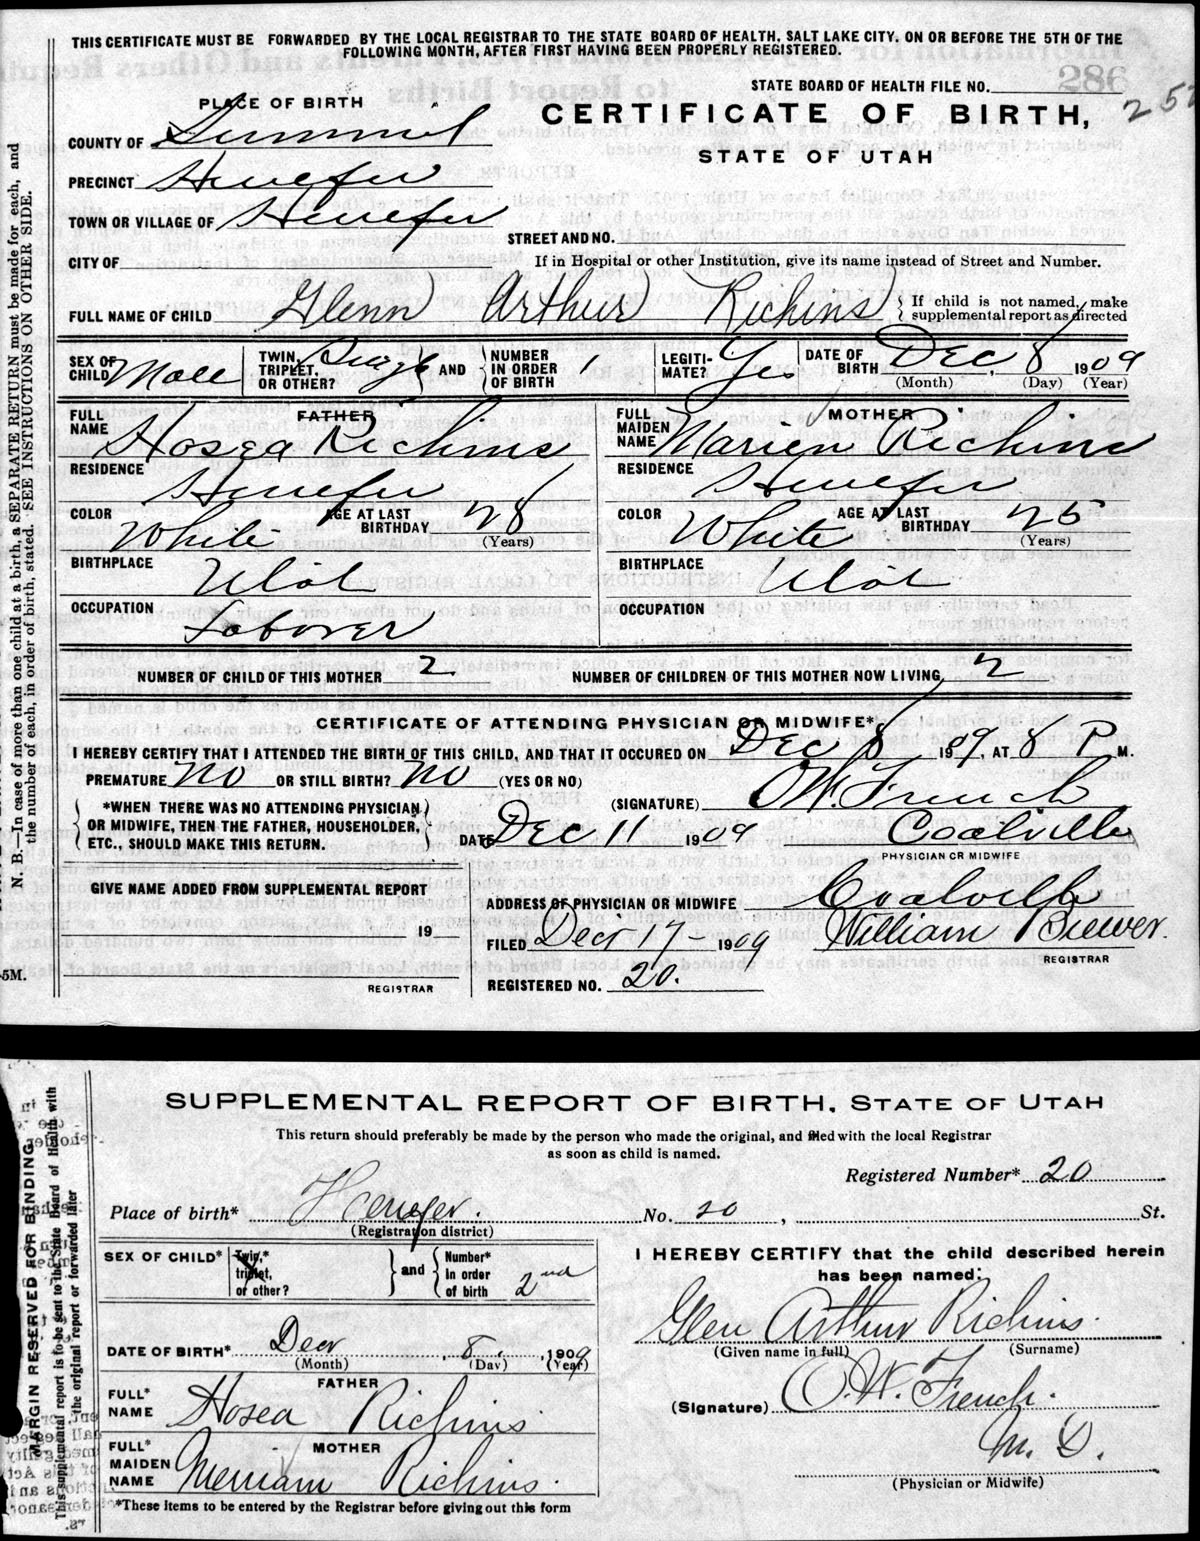 THIS CERTIFICATE MUST BE FORWARDED BY THE LOCAL REGISTRAR TO THE STATE BOARD OF HEALTH, SALT LAKE CITY, ON OR BEFORE THE 5TH OF THE
FOLLOWING MONTH, AFTER FIRST HAVING BEEN PROPERLY REGISTERED.
286
STATE BOARD OF HEALTH FILE NO.
CERTIFICATE OF BIRTH,
STATE OF UTAH
PLACE OF BIRTH
COUNTY OF Summit
PRECINCT Henefer
TOWN OR VILLAGE OF Henefer
STREET AND NO.
CITY OF
If in Hospital or other Institution, give its name instead of Street and Number.
FULL NAME OF CHILD Glenn Arthur Richins
If child is not named, make
supplemental report as directed
SEX OF CHILD Male
TWIN, TRIPLET, OR OTHER? Single AND NUMBER IN ORDER OF BIRTH 1
LEGITIMATE? Yes
DATE OF BIRTH Dec. 8 1909
(Month) (Day) (Year)
FATHER
FULL NAME Hosea Richins
RESIDENCE Henefer
COLOR White AGE AT LAST BIRTHDAY 28
(Years)
BIRTHPLACE Utah
OCCUPATION Laborer
MOTHER
FULL MAIDEN NAME Marien Richins
RESIDENCE Henefer
COLOR White AGE AT LAST BIRTHDAY 25
(Years)
BIRTHPLACE Utah
OCCUPATION
NUMBER OF CHILD OF THIS MOTHER 2
NUMBER OF CHILDREN OF THIS MOTHER NOW LIVING, 2
CERTIFICATE OF ATTENDING PHYSICIAN OR MIDWIFE*
I HEREBY CERTIFY THAT I ATTENDED THE BIRTH OF THIS CHILD, AND THAT IT OCCURED ON Dec 8 1909, AT 8 P M.
PREMATURE No OR STILL BIRTH? No (YES OR NO)
*WHEN THERE WAS NO ATTENDING PHYSICIAN
OR MIDWIFE, THEN THE FATHER, HOUSEHOLDER,
ETC., SHOULD MAKE THIS RETURN.
(SIGNATURE) O.W. French
DATE Dec 11 1909 Coalville
PHYSICIAN OR MIDWIFE
GIVE NAME ADDED FROM SUPPLEMENTAL REPORT
19
REGISTRAR
ADDRESS OF PHYSICIAN OR MIDWIFE Coalville
FILED Decr 17- 1909 William Brewer.
REGISTRAR
REGISTERED NO. 20.
N. B.—In case of more than one child at a birth, a SEPARATE RETURN must be made for each, and
the number of each, in order of birth, stated. SEE INSTRUCTIONS ON OTHER SIDE.
5M.
SUPPLEMENTAL REPORT OF BIRTH, STATE OF UTAH
This return should preferably be made by the person who made the original, and filed with the local Registrar
as soon as child is named.
Registered Number* 20
Place of birth* Henefer. No. 20, St.
(Registration district)
SEX OF CHILD*
Twin,* triplet, or other? and Number* in order of birth 2nd
DATE OF BIRTH* Decr 8, 1909
(Month) (Day) (Year)
FATHER
FULL* NAME Hosea Richins
MOTHER
FULL* MAIDEN NAME Merriam Richins.
*These items to be entered by the Registrar before giving out this form
I HEREBY CERTIFY that the child described herein
has been named:
Glen Arthur Richins.
(Given name in full) (Surname)
(Signature) O. W. French.
M. D.
(Physician or Midwife)
MARGIN RESERVED FOR BINDING
This supplemental report is to be sent to the State Board of Health with
the original report or forwarded later